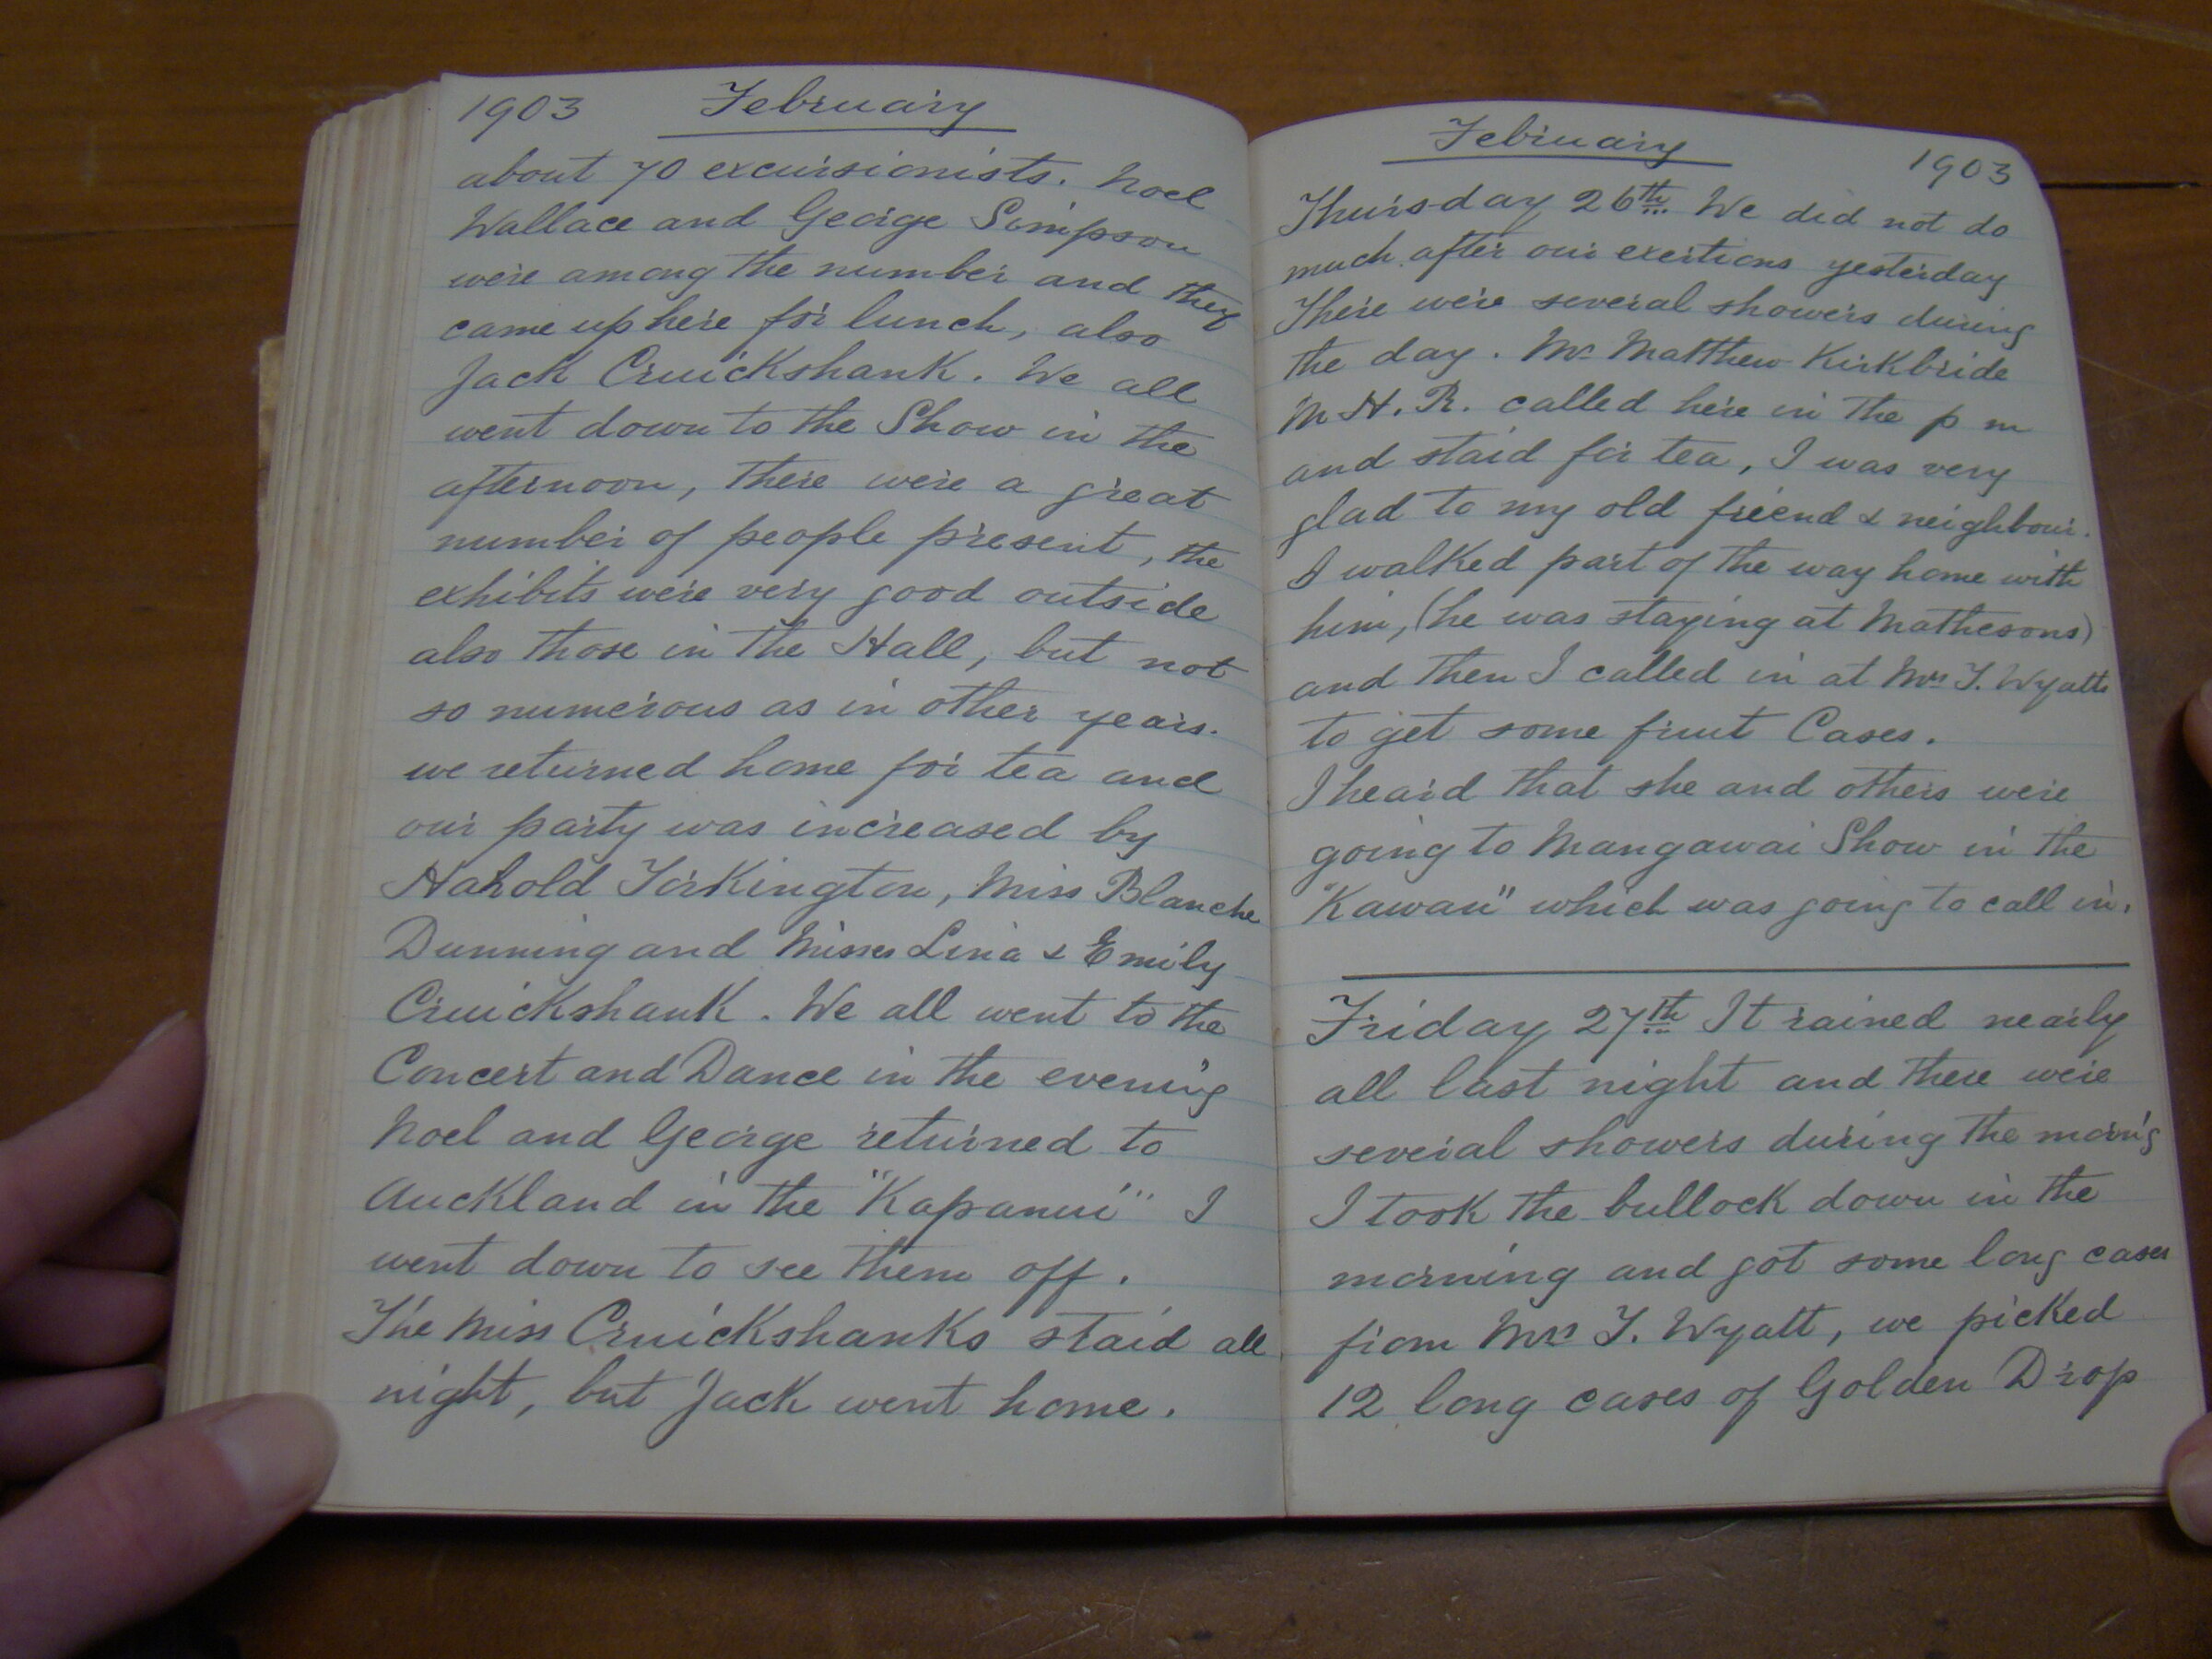 1903 February
about 70 excursionists. Noel
Wallace and George Simpson
were among the number and they
came up here for lunch, also
Jack Cruickshank. We all
went down to the Show in the
afternoon, there were a great
number of people present, the
exhibits were very good outside
also those in the Hall, but not
so numerous as in other years.
we returned home for tea and
our party was increased by
Harold Torkington, Miss Blanche
Dunning and Misses Lina & Emily
Cruickshank. We all went to the
Concert and Dance in the evening
Noel and George returned to
Auckland in the "Kapanui" I
went down to see them off.
The Miss Cruickshanks staid all
night, but Jack went home.
February 1903
Thursday 26th We did not do
much after our exertions yesterday
There were several showers during
the day. Mr Matthew Kirkbride
M H. R. called here in the p m
and staid for tea, I was very
glad to my old friend & neighbour.
I walked part of the way home with
him, (he was staying at Mathesons)
and then I called in at Mrs T. Wyatts
to get some fruit Cases.
I heard that she and others were
going to Mangawai Show in the
"Kawau" which was going to call in.
Friday 27th It rained nearly
all last night and there were
several showers during the morn'g
I took the bullock down in the
morning and got some long cases
from Mrs T. Wyatt, we picked
12 long cases of Golden Drop